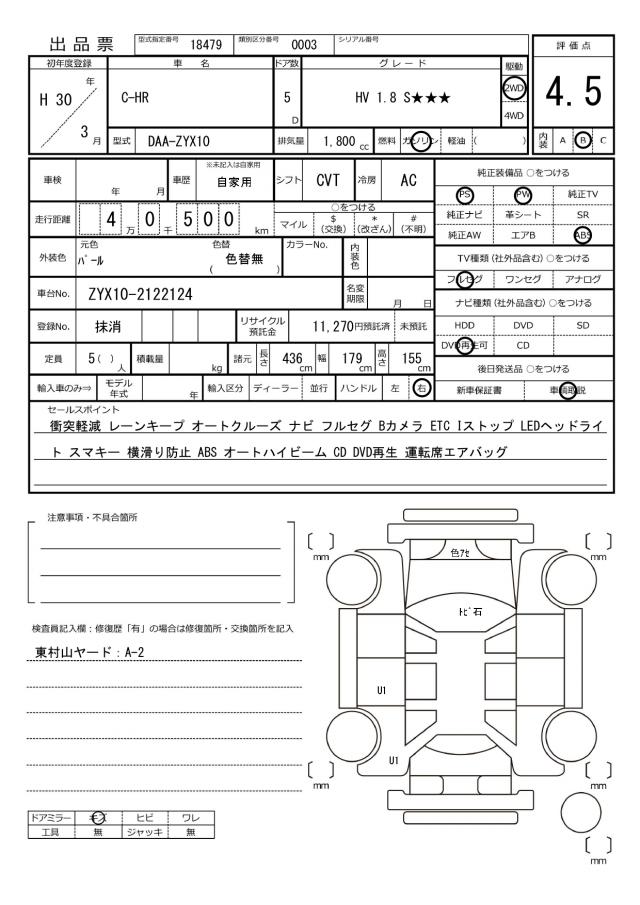 出品票 型式指定番号 18479 類別区分番号 0003 シリアル番号
評価点
4.5
内装 A B C
初年度登録 車名 ドア数 グレード 駆動
H 30 年 3 月 C-HR 5 D HV 1.8 S★★★ 2WD 4WD
型式 DAA-ZYX10 排気量 1,800 cc 燃料 ガソリン 軽油 ( )
車検 年 月 車歴 ※未記入は自家用 自家用 シフト CVT 冷房 AC
走行距離 4 万 0 千 5 0 0 km
○をつける
マイル $(交換) *(改ざん) #(不明)
外装色 元色 パール 色替 色替無 ( ) カラーNo. 内装色
車台No. ZYX10-2122124 名変期限 月 日
登録No. 抹消 リサイクル預託金 11,270円預託済 未預託
定員 5( )人 積載量 kg 諸元 長さ 436cm 幅 179cm 高さ 155cm
輸入車のみ⇒ モデル年式 年 輸入区分 ディーラー 並行 ハンドル 左 右
純正装備品 ○をつける
PS PW 純正TV
純正ナビ 革シート SR
純正AW エアB ABS
TV種類(社外品含む)○をつける
フルセグ ワンセグ アナログ
ナビ種類(社外品含む)○をつける
HDD DVD SD
DVD再生可 CD
後日発送品 ○をつける
新車保証書 車輌取説
セールスポイント
衝突軽減 レーンキープ オートクルーズ ナビ フルセグ Bカメラ ETC Iストップ LEDヘッドライ
ト スマキー 横滑り防止 ABS オートハイビーム CD DVD再生 運転席エアバッグ
注意事項・不具合箇所
検査員記入欄：修復歴「有」の場合は修復箇所・交換箇所を記入
東村山ヤード：A-2
ドアミラー キズ ヒビ ワレ
工具 無 ジャッキ 無
mm
mm
色ｱｾ
ﾄﾋﾞ石
U1
U1
mm
mm
mm